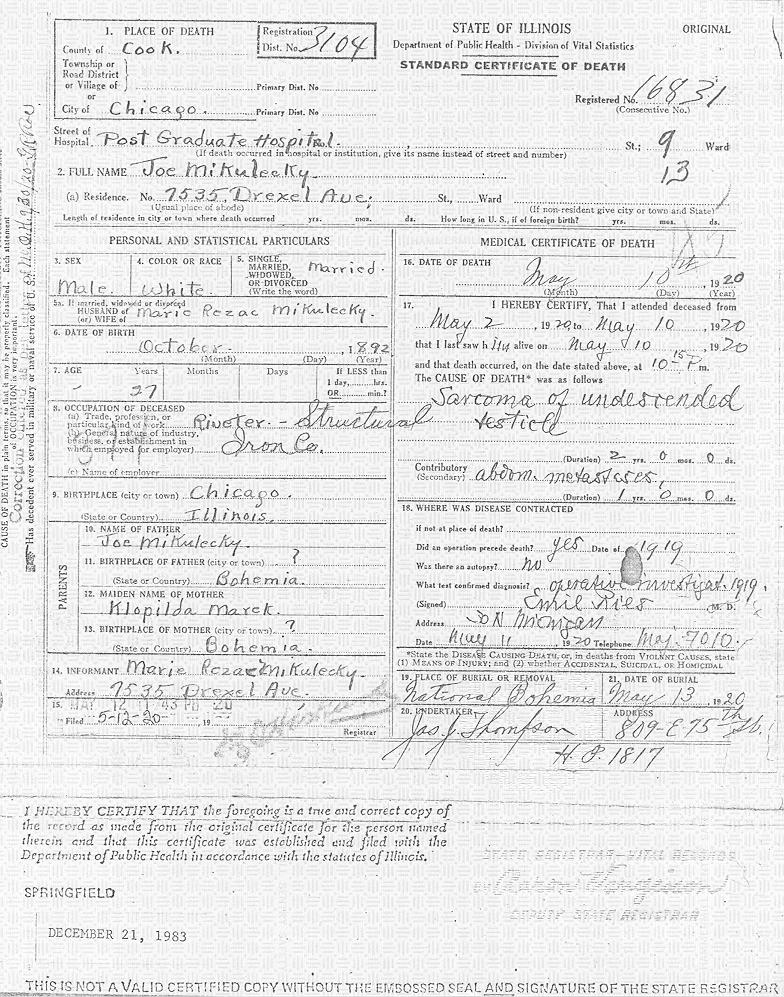 1. PLACE OF DEATH
County of Cook.
Township or
Road District
or Village of
Primary Dist. No
or
City of Chicago. Primary Dist. No.
Registration
Dist. No. 3104
STATE OF ILLINOIS
ORIGINAL
Department of Public Health - Division of Vital Statistics
STANDARD CERTIFICATE OF DEATH
Registered No. 16831
(Consecutive No.)
Street of
Hospital. Post Graduate Hospital. St.; 9 Ward
(If death occurred in hospital or institution, give its name instead of street and number)
13
2. FULL NAME Joe Mikulecky.
(a) Residence. No. 7535 Drexel Ave. St., Ward
(Usual place of abode) (If non-resident give city or town and State)
Length of residence in city or town where death occurred yrs. mos. ds. How long in U. S., if of foreign birth? yrs. mos. ds.
PERSONAL AND STATISTICAL PARTICULARS
3. SEX
Male.
4. COLOR OR RACE
White.
5. SINGLE,
MARRIED,
WIDOWED,
OR DIVORCED
(Write the word)
Married.
5a. If married, widowed or divorced
HUSBAND of
(or) WIFE of
Marie Rezac Mikulecky.
6. DATE OF BIRTH
October. , 1892
(Month) (Day) (Year)
7. AGE Years Months Days If LESS than
1 day,....hrs.
OR.....min.?
27
8. OCCUPATION OF DECEASED
(a) Trade, profession, or
particular kind of work. Riveter. - Structural
(b) General nature of industry,
business, or establishment in
which employed (or employer) Iron Co.
(c) Name of employer
9. BIRTHPLACE (city or town) Chicago.
(State or Country) Illinois.
PARENTS
10. NAME OF FATHER
Joe Mikulecky.
11. BIRTHPLACE OF FATHER (city or town) ?
(State or Country) Bohemia.
12. MAIDEN NAME OF MOTHER
Klopilda Marek.
13. BIRTHPLACE OF MOTHER (city or town) ?
(State or Country) Bohemia.
14. INFORMANT Marie Rezac Mikulecky.
Address 7535 Drexel Ave.
15. MAY 12 11 43 PM 20
Filed 5-12-20 19
Registrar
MEDICAL CERTIFICATE OF DEATH
16. DATE OF DEATH
May 10th , 1920
(Month) (Day) (Year)
17. I HEREBY CERTIFY, That I attended deceased from
May 2 , 1920, to May 10 1920
that I last saw him alive on May 10 1920
and that death occurred, on the date stated above, at 10 15 P m.
The CAUSE OF DEATH* was as follows
Sarcoma of undescended
testicle
(Duration) 2 yrs. 0 mos. 0 ds.
Contributory abdom. metastases,
(Secondary)
(Duration) 1 yrs. 0 mos. 0 ds.
18. WHERE WAS DISEASE CONTRACTED
if not at place of death?
Did an operation precede death? yes Date of 1919
Was there an autopsy? no
What test confirmed diagnosis? operative investigat. 1919.
(Signed) Emil Ries (M. D.
Address 30 N Michigan
Date May 11 1920 Telephone Maj. 7010.
*State the DISEASE CAUSING DEATH, or, in deaths from VIOLENT CAUSES, state
(1) MEANS OF INJURY; and (2) whether ACCIDENTAL, SUICIDAL, OR HOMICIDAL
19. PLACE OF BURIAL OR REMOVAL
National Bohemia
21. DATE OF BURIAL
May 13 , 1920
20. UNDERTAKER
Jas. J. Thompson
ADDRESS
809-E-75th St.
H.P. 1817
I HEREBY CERTIFY THAT the foregoing is a true and correct copy of
the record as made from the original certificate for the person named
therein and that this certificate was established and filed with the
Department of Public Health in accordance with the statutes of Illinois.
SPRINGFIELD
DECEMBER 21, 1983
STATE REGISTRAR-VITAL RECORDS
DEPUTY STATE REGISTRAR
THIS IS NOT A VALID CERTIFIED COPY WITHOUT THE EMBOSSED SEAL AND SIGNATURE OF THE STATE REGISTRAR
CAUSE OF DEATH in plain terms, so that it may be properly classified. Each statement
of OCCUPATION is very important.
Has decedent ever served in military or naval service of U. S.